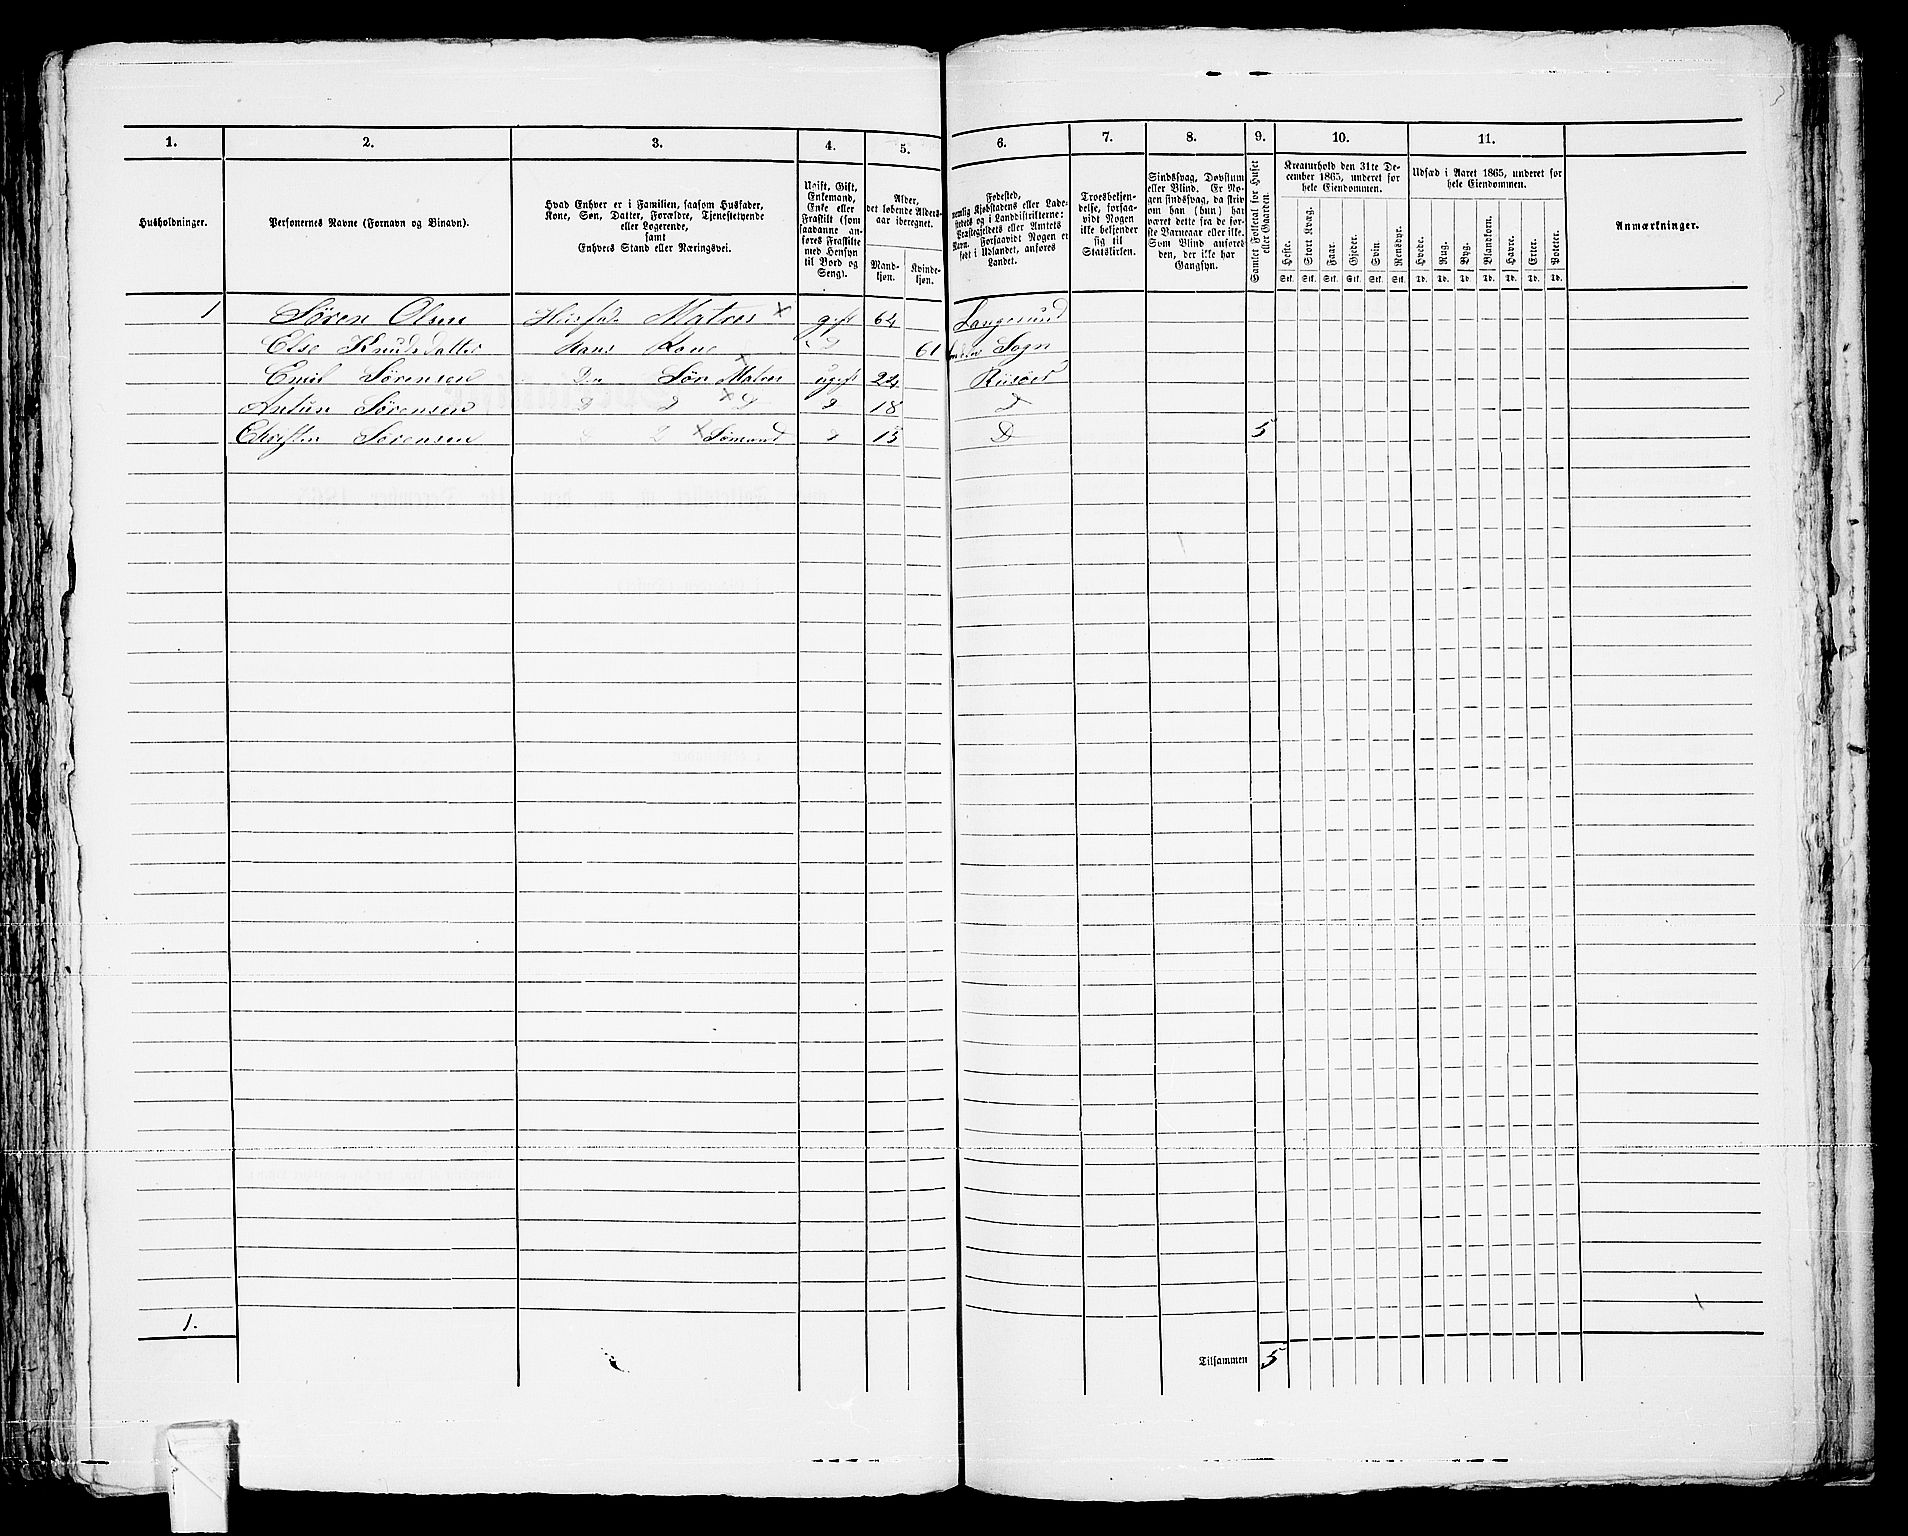 1. 2. 3. 4. 5. 6. 7. 8. 9. 10. 11.
Husholdninger.
Personernes Navne (Fornavn og Binavn).
Hvad Enhver er i Familien, saasom Husfader,
Kone, Søn, Datter, Forældre, Tjenestetyende
eller Logerende,
samt
Enhvers Stand eller Næringsvei.
Ugift, Gift,
Enkemand,
Enke eller
Fraskilt (som
saadanne an-
føres Fraskilte
med Hensyn
til Bord og
Seng).
Alder,
det løbende Alders-
aar iberegnet.
Mand-
kjøn.
Kvinde-
kjøn.
Fødested,
nemlig Kjøbstadens eller Lade-
stedets og i Landdistrikterne:
Præstegjeldets eller Amtets
Navn. Forsaavidt Nogen er
født i Udlandet, anføres
Landet.
Troesbekjen-
delse, forsaa-
vidt Nogen
ikke bekjender
sig til
Statskirken.
Sindssvag, Døvstum
eller Blind. Er No-
gen sindssvag, da skriv
om han (hun) har
været dette fra de før-
ste Barneaar eller ikke.
Som Blind anføres
den, der ikke har
Gangsyn.
Samlet Folketal for Huset
eller Gaarden.
Kreaturhold den 31te De-
cember 1865, underet for
hele Eiendommen.
Heste. Stort Kvæg. Faar. Gjeder. Svin. Rensdyr.
Stk. Stk. Stk. Stk. Stk. Stk.
Udsæd i Aaret 1865, underet for
hele Eiendommen.
Hvede. Rug. Byg. Blandkorn. Havre. Erter. Poteter.
Td. Td. Td. Td. Td. Td. Td.
Anmærkninger.
1 Sören Olsen Husfad. Matros × gift 64 Langesund
Else Knudsdatter Hans Kone 61 Sogn
Emil Sörensen Søn Matros ugift 24 Riisöer
Antun Sörensen 18
Christen Sörensen × Sömand 13 5
1.
Tilsammen 5